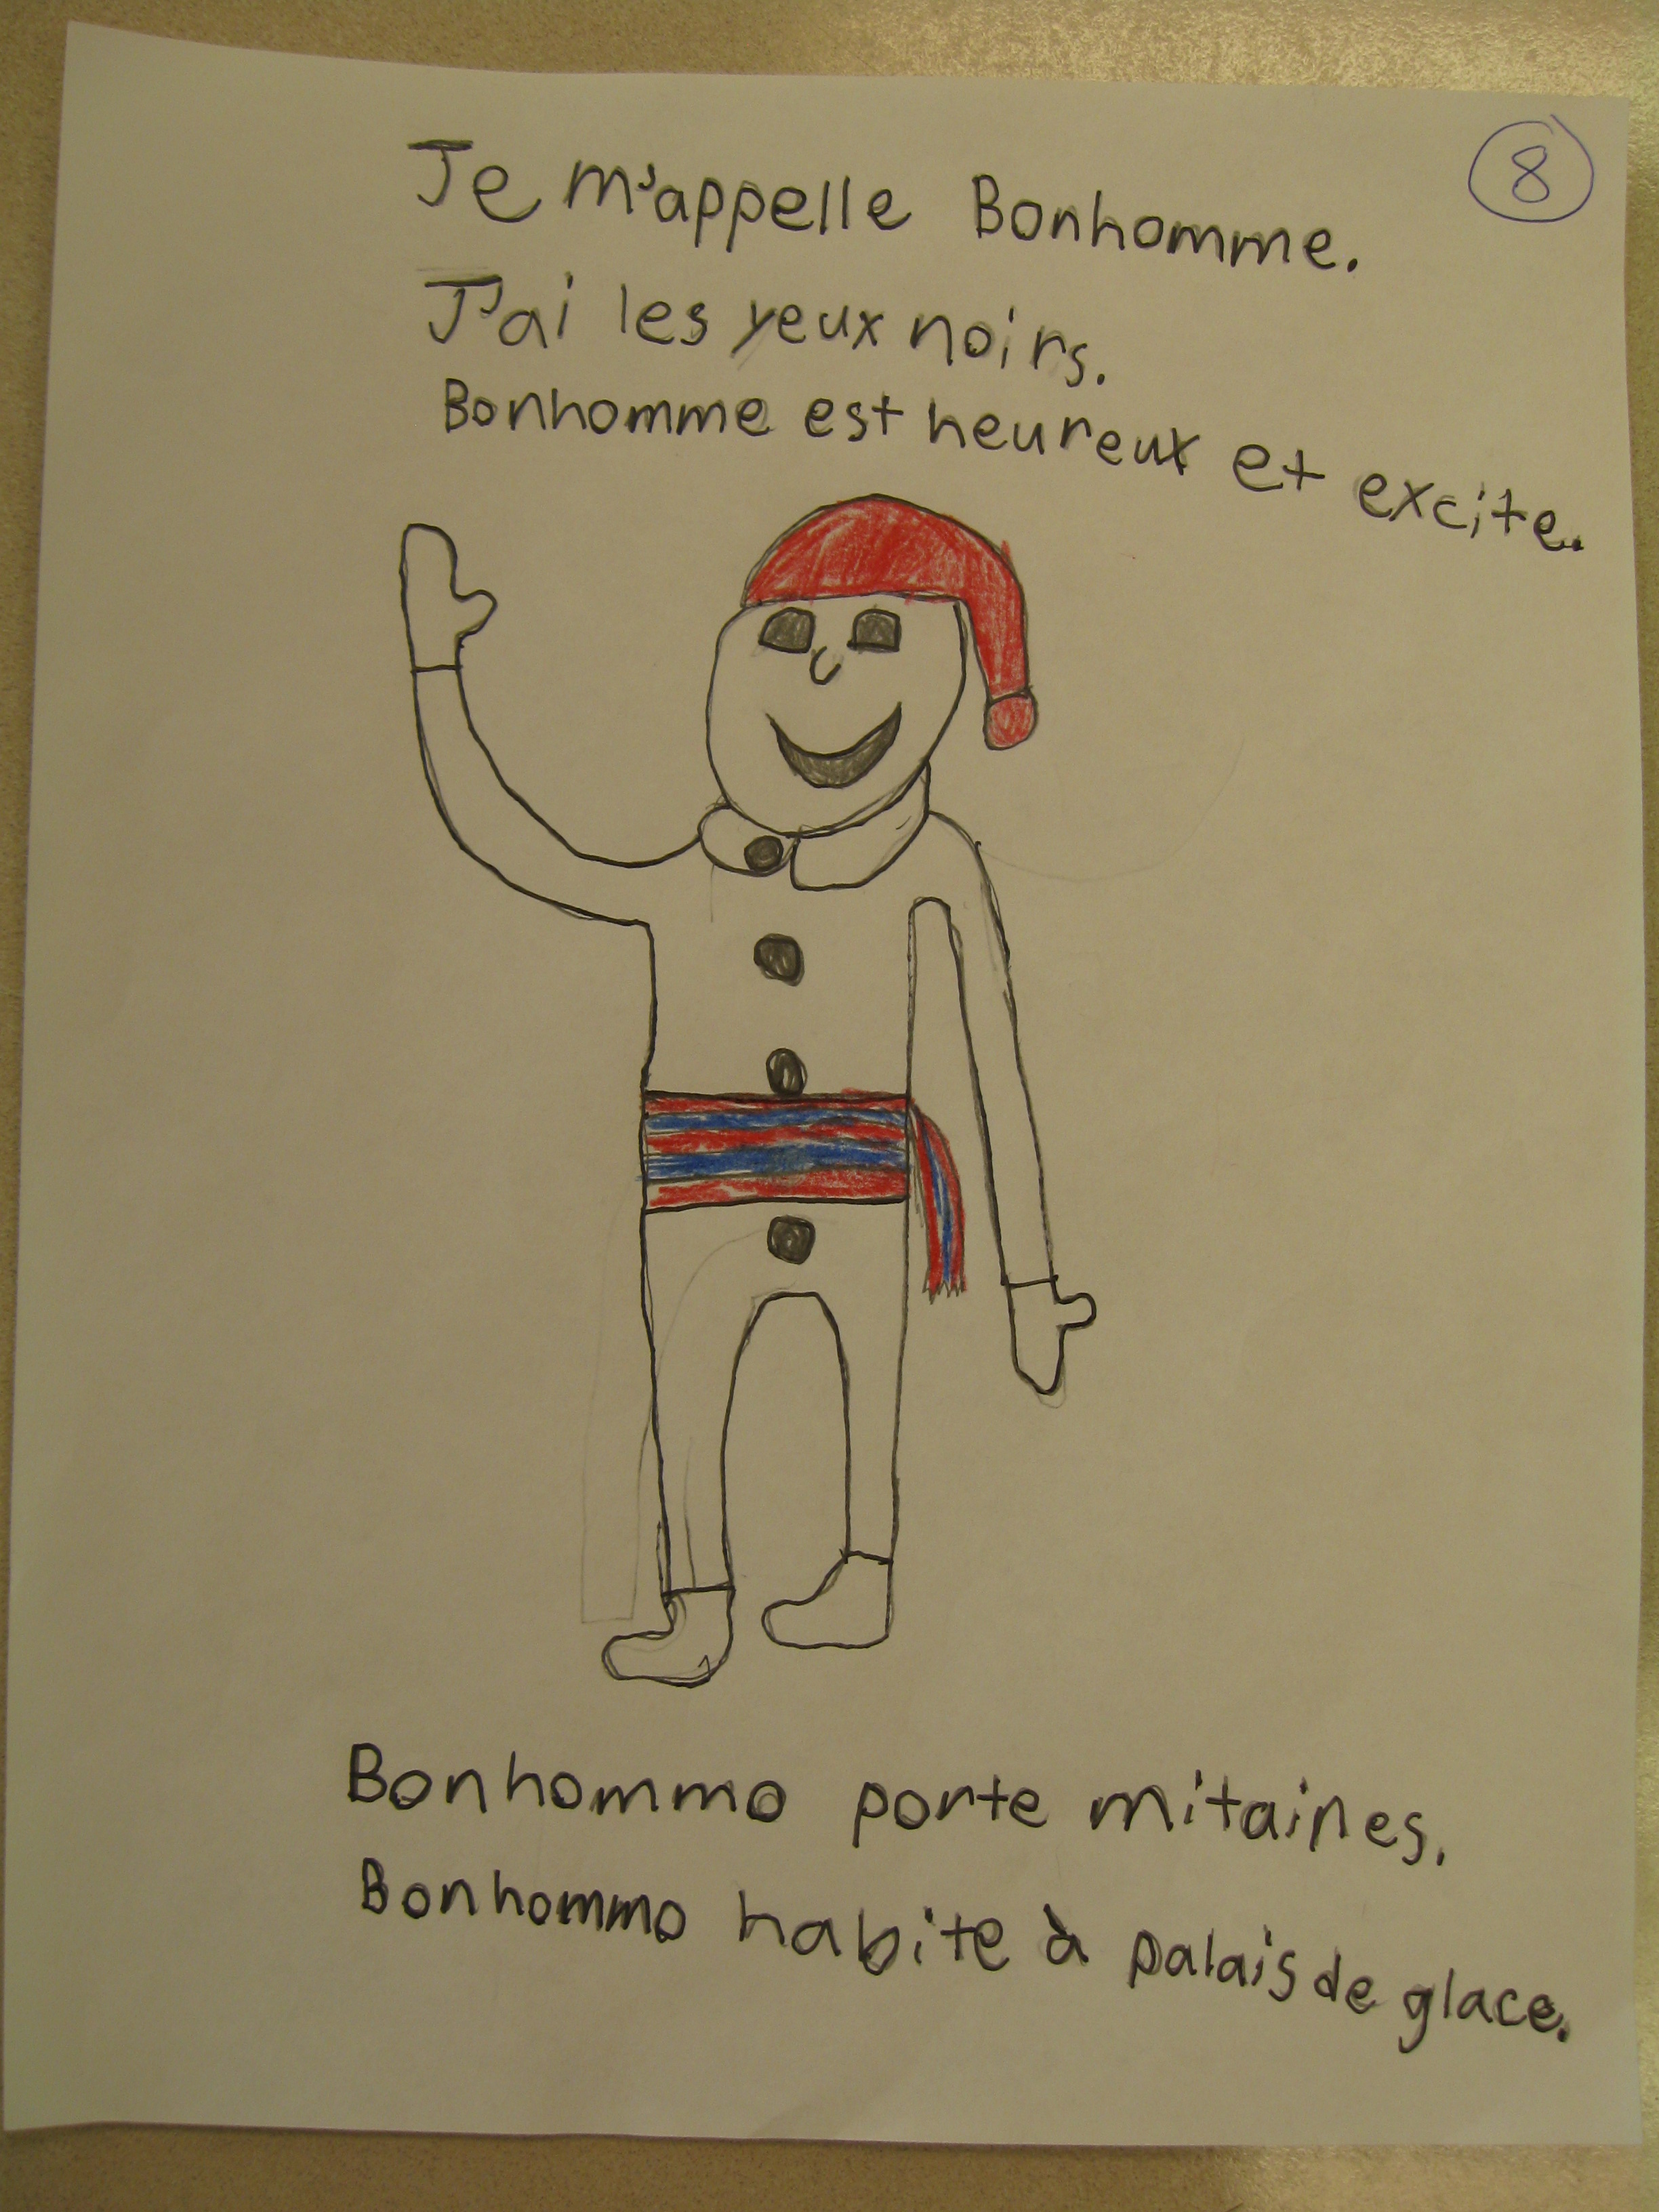 8
Je m'appelle Bonhomme.
J'ai les yeux noirs.
Bonhomme est heureux et excite.
Bonhommo porte mitaines.
Bonhommo habite à palais de glace.